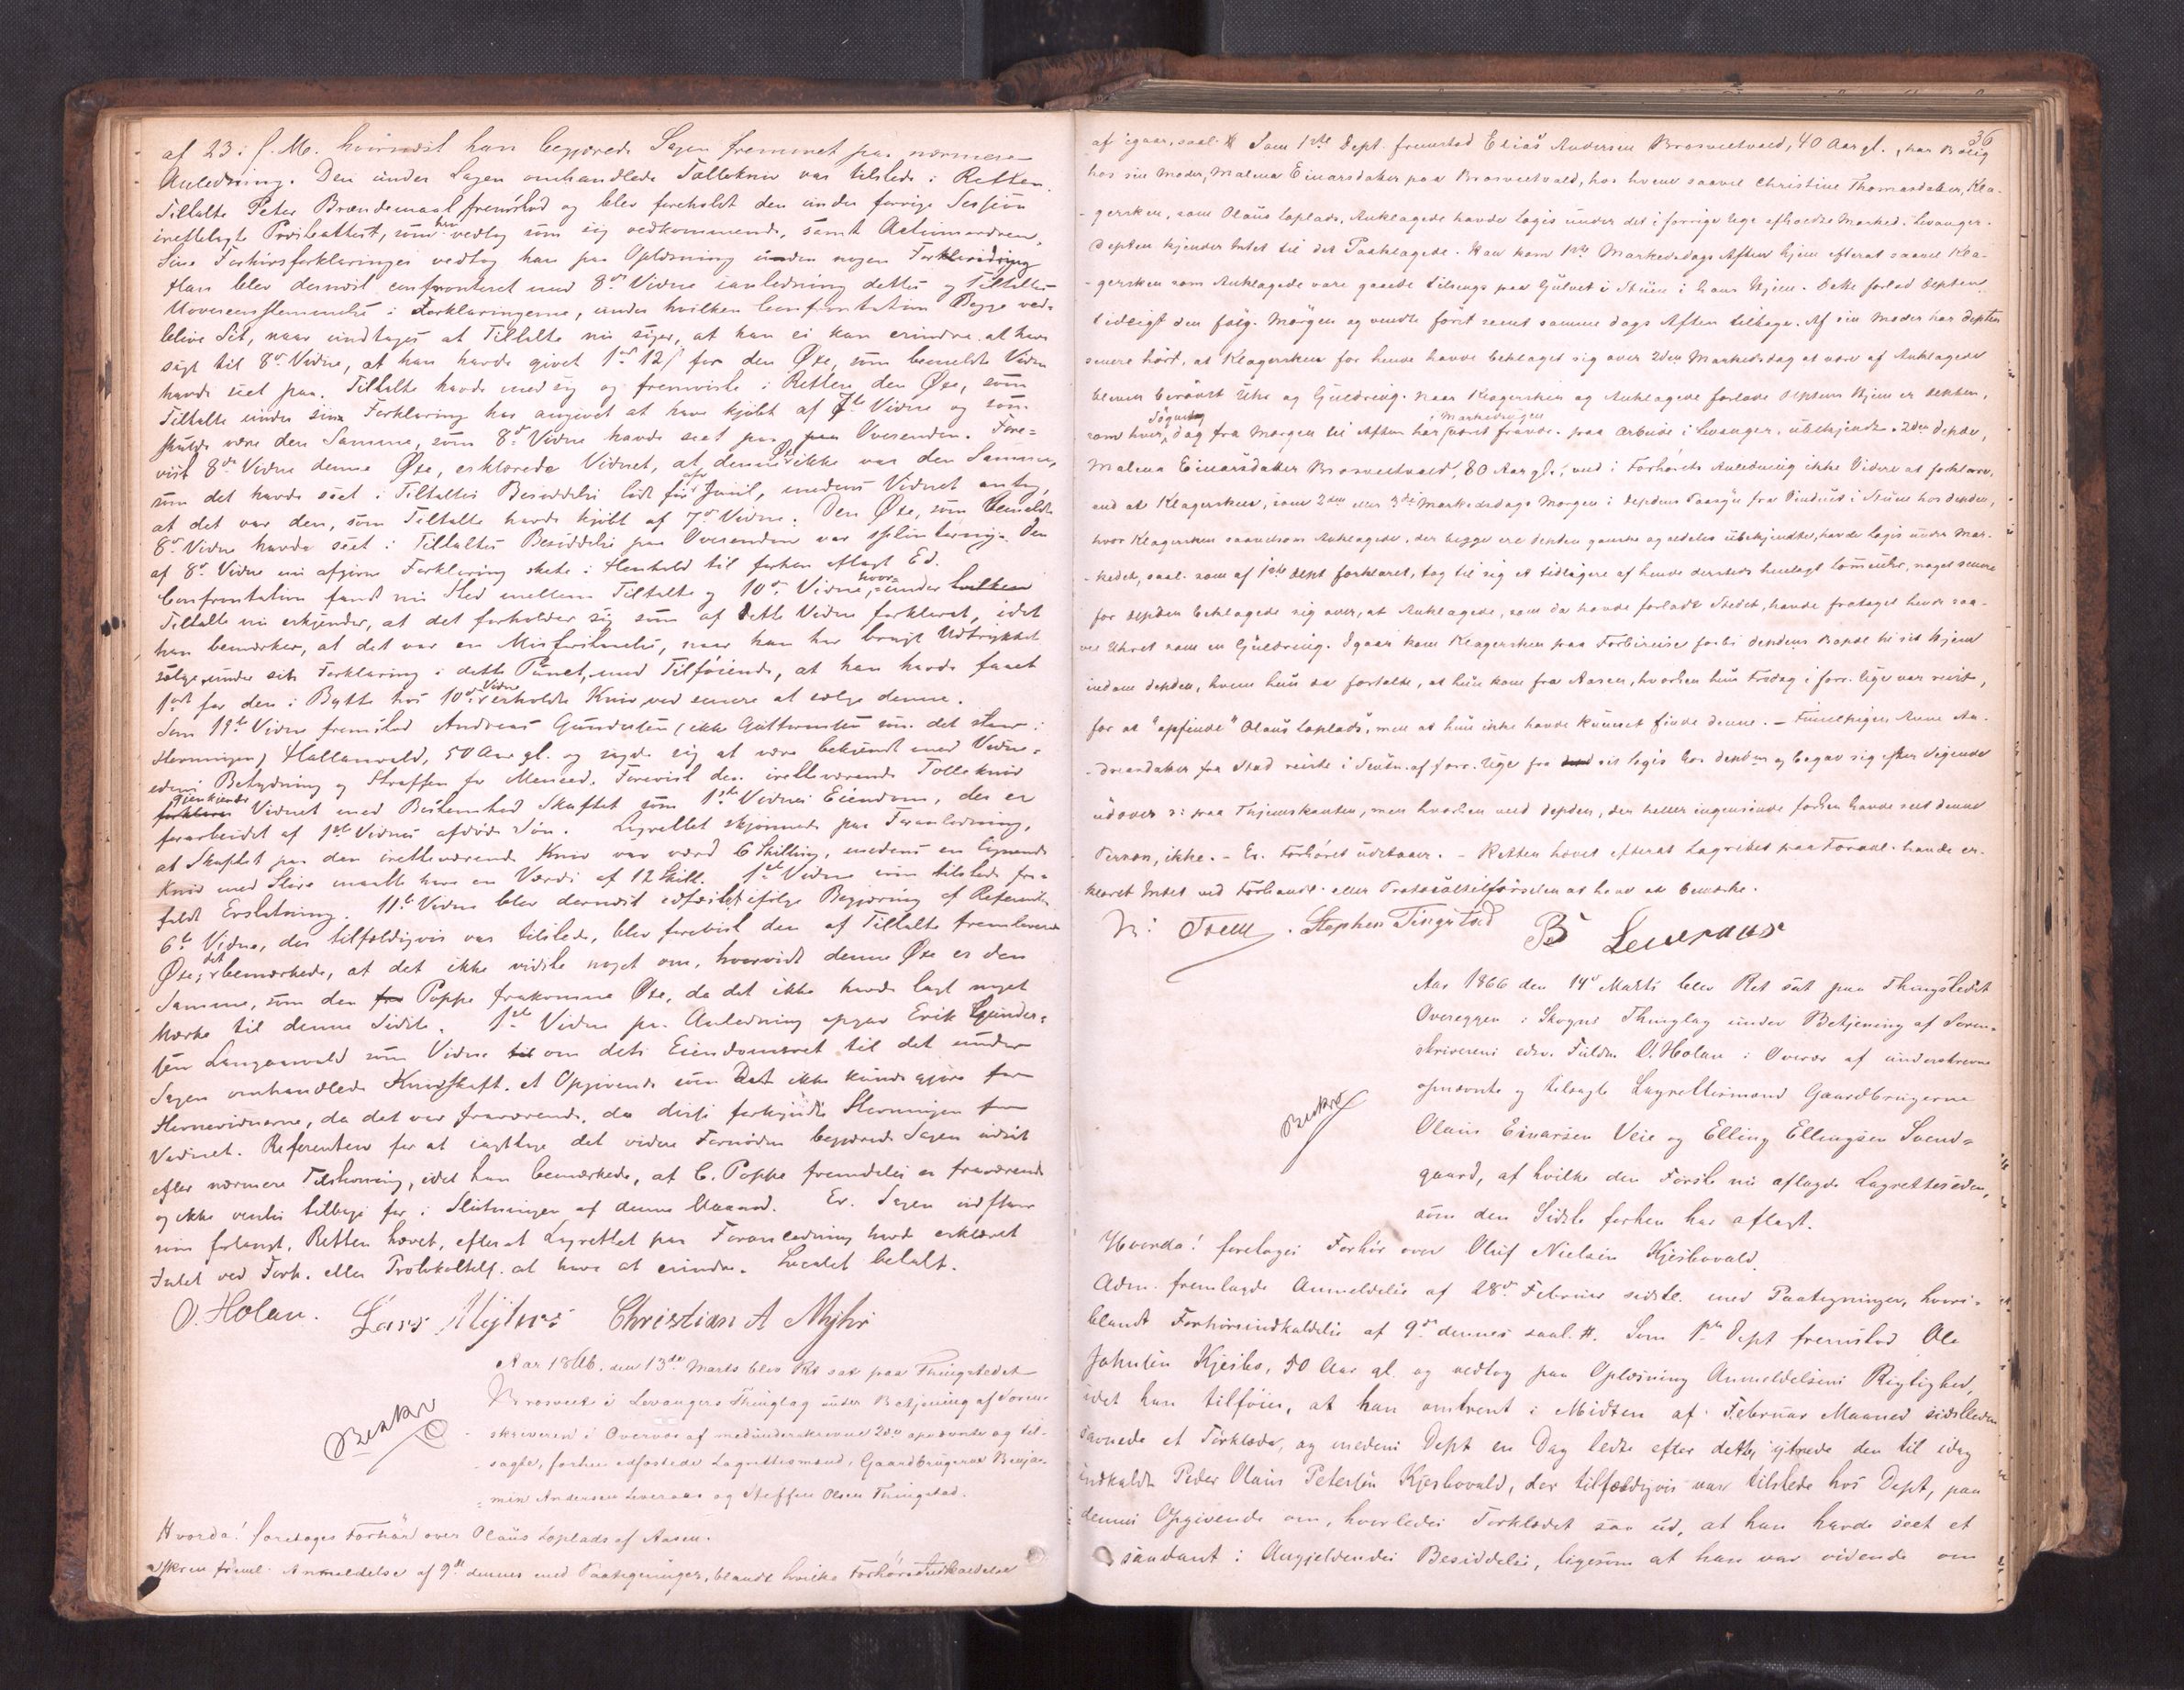 af 23. f. M. hvornæst han begjærede Sagen fremmet paa nærmere
Anledning. Den under Sagen omhandlede Tollekniv var tilstede i Retten.
Tiltalte Peter Brændemaal fremstod og blev foreholdt den under forrige Session
irettelagte Præsteattest, som han vedtog som sig vedkommende, samt Actionsordren,
Sine Forhørsforklaringer vedtog han paa Oplæsning uden nogen Forklaring
Han blev dernæst confronteret med 8de Vidne i anledning dettes og Tiltaltes
Uoverensstemmelse i Forklaringerne, under hvilken Confrontation Begge ved-
bleve Sit, naar undtages at Tiltalte nu siger, at han ei kan erindre at have
sagt til 8de Vidne, at han havde givet 1 ort 12 s for den Øxe, som bemeldte Vidne
havde seet paa. Tiltalte havde med sig og fremviste i Retten den Øxe, som
Tiltalte under sine Forklaring har angivet at have kjøbt af 7de Vidne og som
skulde være den Samme, som 8de Vidne havde seet paa Overenden. Fore-
vist 8de Vidne denne Øxe, erklærede Vidnet, at denne Øxe ikke var den Samme,
som det havde seet i Tiltaltes Besiddelse sidst før Juul, medens Vidnet antog,
at det var den, som Tiltalte havde kjøbt af 7de Vidne. Den Øxe, som bemeldte
8de Vidne havde seet i Tiltaltes Besiddelse paa Overenden var splinterny. Den
af 8de Vidne nu afgivne Forklaring skete i Henhold til forhen aflagt Ed.
Confrontation fandt nu Sted mellem Tiltalte og 10de Vidne, hvorunder
Tiltalte nu erkjender, at det forholder sig som af dette Vidne forklaret, idet
han bemærker, at det var en Misforstaaelse, naar han har brugt Udtrykket
sælge under sin Forklaring i dette Punct, med Tilføiende, at han havde faaet
1 ort for den i Bytte hos 10de Vidne erholdte Kniv ved senere at sælge denne.
Som 11te Vidne fremstod Andreas Gundersen (ikke Guttormsen som det staar i
Stevningen) Hallanvald, 50 Aar gl. og sagde sig at være bekjendt med Vidne-
edens Betydning og Straffen for Meneed. Forevist den iretteværende Tollekniv
gjenkjender Vidnet med Bestemthed Skaftet som 1ste Vidnes Eiendom, der er
forarbeidet af 1ste Vidnes afdøde Søn. Lagrettet skjønnede paa Foranledning,
at Skaftet paa den iretteværende Kniv var værd 6 Skilling, medens en lignende
Kniv med Slire maatte have en Værdi af 12 Skill. 1ste Vidne som tilstede fra-
faldt Erstatning. 11te Vidne blev dernæst edfæstet ifølge Begjæring af Referenten
6te Vidne, der tilfældigvis var tilstede, blev forevist den af Tiltalte fremleverede
Øxe; det bemærkede, at det ikke vidste noget om, hvorvidt denne Øxe er den
Samme, som den Poppe frakomne Øxe, da det ikke havde lagt noget
Mærke til denne Sidste. 1ste Vidne paa Anledning opgav Erik Gunder-
sen Langaasvald som Vidne om dets Eiendomsret til det under
Sagen omhandlede Knivskaft, et Opgivende som Det ikke kunde gjøre for
Stevnevidnerne, da det var fraværende, da disse forkyndte Stevningen for
Vidnet. Referenten for at iagttage det videre Fornødne begjærede Sagen udsat
efter nærmere Tilstevning, idet han bemærkede, at C. Poppe fremdeles er fraværende
og ikke ventes tilbage før i Slutningen af denne Maaned. Er. Sagen udstaar
som forlangt. Retten hævet, efterat Lagrettet paa Foranledning havde erklæret
Intet ved Forh. eller Protokoltilf. at have at erindre. Localet betalt.
O. Holan. Lars Myhrs Christian A Myhr
Aar 1866. den 13de Marts blev Ret sat paa Thingstedet
Brosveet i Levangers Thinglag under Betjening af Soren-
skriveren i Overvær af medunderskrevne 2de opnævnte og til-
sagte, forhen edfæstede Lagrettesmænd, Gaardbrugerne Benja-
min Andersen Leveraas og Steffen Olsen Thingstad.
Beskr
Hvorda! foretoges Forhør over Olaüs Loplads af Aasen.
Skriv. freml. Anmeldelse af 9de dennes med Paategninger, blandt hvilke Forhørsindkaldelse
36
af igaar, saal. # Som 1ste Dept. fremstod Elias Andersen Brosveetvald, 40 Aar gl., har Bolig
hos sin Moder, Malena Einarsdatter paa Brosveetvald, hos hvem saavel Christine Thomasdatter, Kla-
gersken, som Olaüs Loplads, Anklagede havde Logis under det i forrige Uge afholdte Marked i Levanger.
Depten kjender Intet til det Paaklagede. Han kom 1ste Markedsdags Aften hjem efterat saavel Kla-
gersken som Anklagede vare gaaede tilsengs paa Gulvet i Stuen i hans Hjem. Dette forlod Depten
tidligt den følg. Morgen og vendte først seent samme Dags Aften tilbage. Af sin Moder har Depten
senere hørt, at Klagersken for hende havde beklaget sig over 2den Markedsdag at være af Anklagede
bleven berøvet Uhr og Guldring. Naar Klagersken og Anklagede forlode Deptens Hjem er Depten,
som hver Søgnedag fra Morgen til Aften har i Markedsugen været fravær. paa Arbeide i Levanger, ubekjendt. 2den Depten,
Malena Einarsdatter Brosveetvald, 80 Aar gl., ved i Forhørets Anledning ikke Videre at forklare,
end at Klagersken, som 2den eller 3die Markedsdags Morgen i Deptens Paasyn fra Vinduet i Stuen hos Depten,
hvor Klagersken saavelsom Anklagede, der begge ere Depten ganske og aldeles ubekjendte, havde Logis under Mar-
kedet, saal. som af 1ste Dept forklaret, tog til sig et tidligere af hende dersteds henlagt Lommeuhr, noget senere
for Depten beklagede sig over, at Anklagede, som da havde forladt Stedet, havde frataget hende saa-
vel Uhret som en Guldring. Igaar kom Klagersken paa Forbireise forbi Deptens Bopæl til sit Hjem
indom Depten, hvem hun da fortalte, at hun kom fra Aasen, hvorhen hun Fredag i forr. Uge var reist,
for at "opfinde" Olaüs Loplads, men at hun ikke havde kunnet finde denne. – Fruentigen Anne An-
dreasdatter fra Stad reiste i Slutn. af forr. Uge fra sit Logis hos Depten og begav sig efter Sigende
udover ɔ: paa Thjemskanten, men hvorhen ved Depten, der heller ingensinde forhen havde seet denne
Person, ikke. – Er. Forhøret udstaaer. – Retten hævet efterat Lagrettet paa Foranl. havde er-
klæret Intet ved Forhandl. eller Protocoltilførselen at have at bemærke.
Stephen Tingstad B Leveraas
Aar 1866 den 14de Marts blev Ret sat paa Thingstedet
Overeggen i Skogns Thinglag under Betjening af Soren-
skriverens edsv. Fuldm. O. Holan i Overvær af underskrevne
opnævnte og tilsagte Lagrettesmænd Gaardbrugerne
Olaus Einarsen Veie og Elling Ellingsen Svend-
gaard, af hvilke den Første nu aflagde Lagretteseden,
som den Sidste forhen har aflagt.
Beskr
Hvorda! foretoges Forhør over Oluf Nielsen Kjesbovald.
Adm. fremlagde Anmeldelse af 28de Februar sidstl. med Paategninger, hvori-
blandt Forhørsindkaldelse af 9de dennes saal. #. Som 1ste Dept fremstod Ole
Johnsen Kjesbo, 50 Aar gl. og vedtog paa Oplæsning Anmeldelsens Rigtighed,
idet han tilføier, at han omtrent i Midten af Februar Maaned sidstleden
savnede et Tørklæde, og medens Dept en Dag ledte efter dette, ytrede den til idag
indkaldte Peder Olaus Petersen Kjesbovald, der tilfældigvis var tilstede hos Dept, paa
dennes Opgivende om, hvorledes Tørklædet saa ud, at han havde seet et
saadant i Angjeldendes Besiddelse, ligesom at han var vidende om